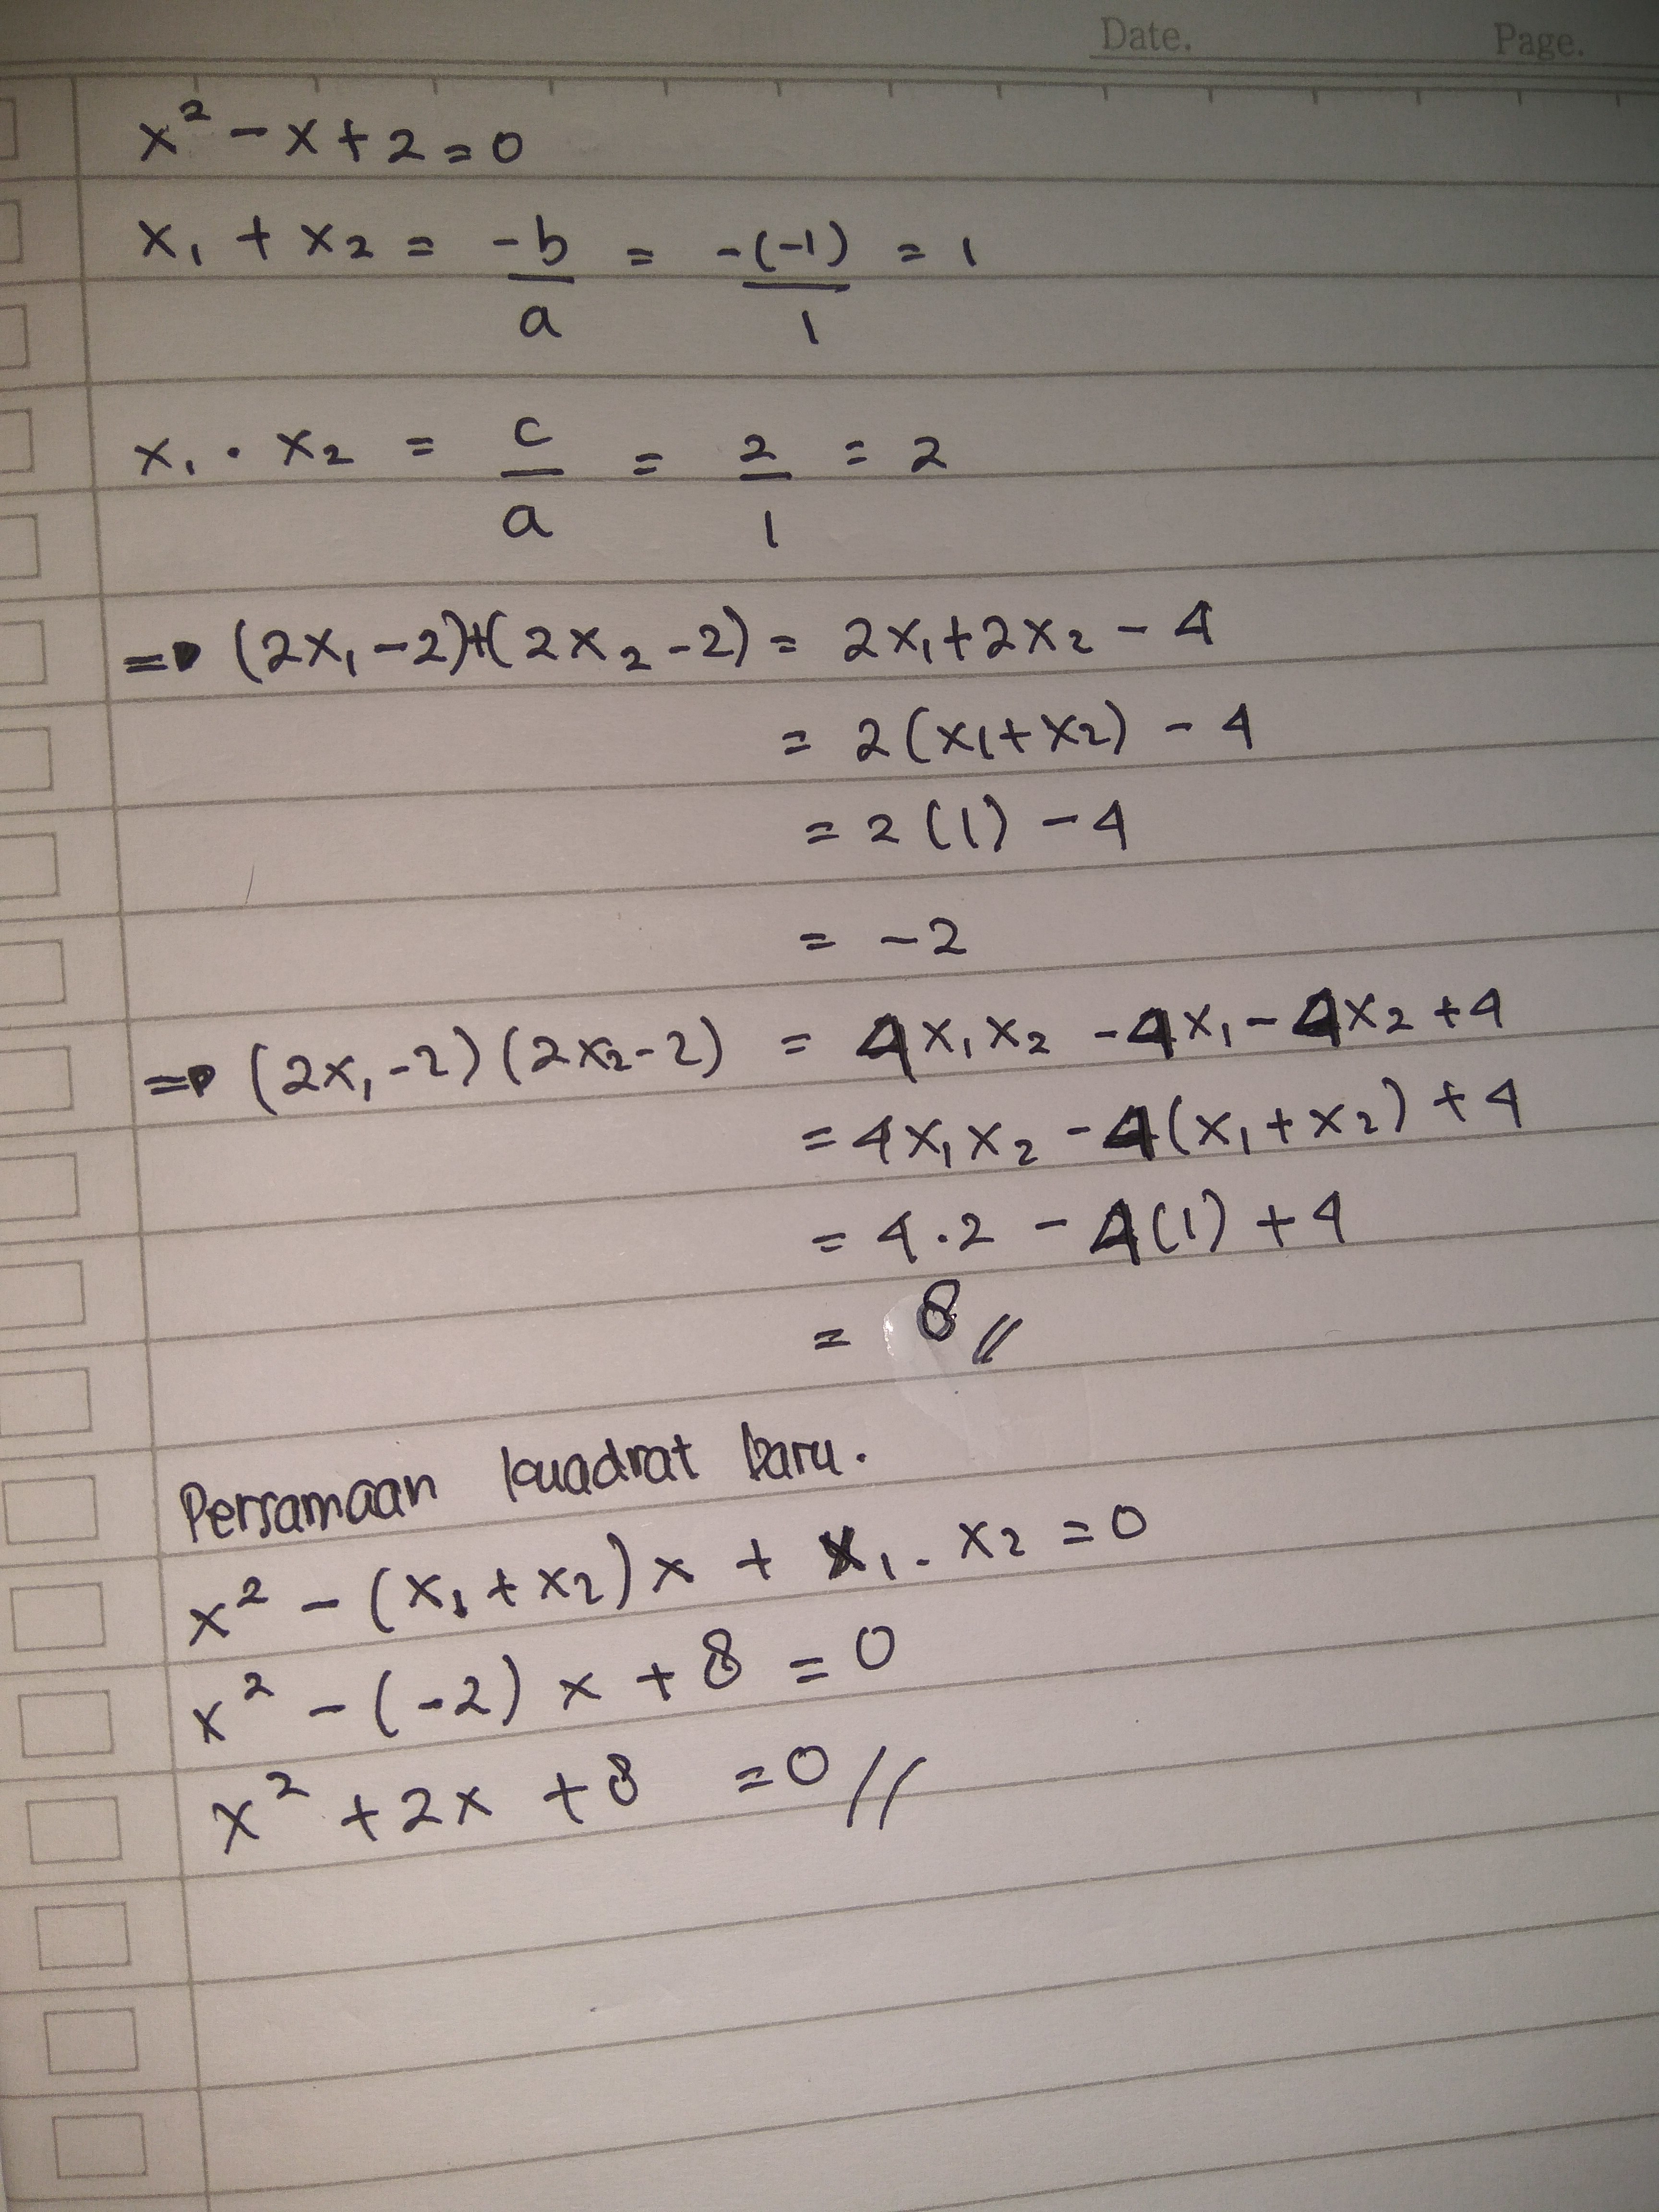 Date. Page.
x² - x + 2 = 0
x₁ + x₂ = -b/a = -(-1)/1 = 1
x₁ · x₂ = c/a = 2/1 = 2
⇒ (2x₁ - 2)+(2x₂ - 2) = 2x₁ + 2x₂ - 4
= 2(x₁+x₂) - 4
= 2(1) - 4
= -2
⇒ (2x₁ - 2)(2x₂ - 2) = 4x₁x₂ - 4x₁ - 4x₂ + 4
= 4x₁x₂ - 4(x₁+x₂) + 4
= 4.2 - 4(1) + 4
= 8 //
Persamaan kuadrat baru.
x² - (x₁+x₂)x + x₁ . x₂ = 0
x² - (-2)x + 8 = 0
x² + 2x + 8 = 0 //